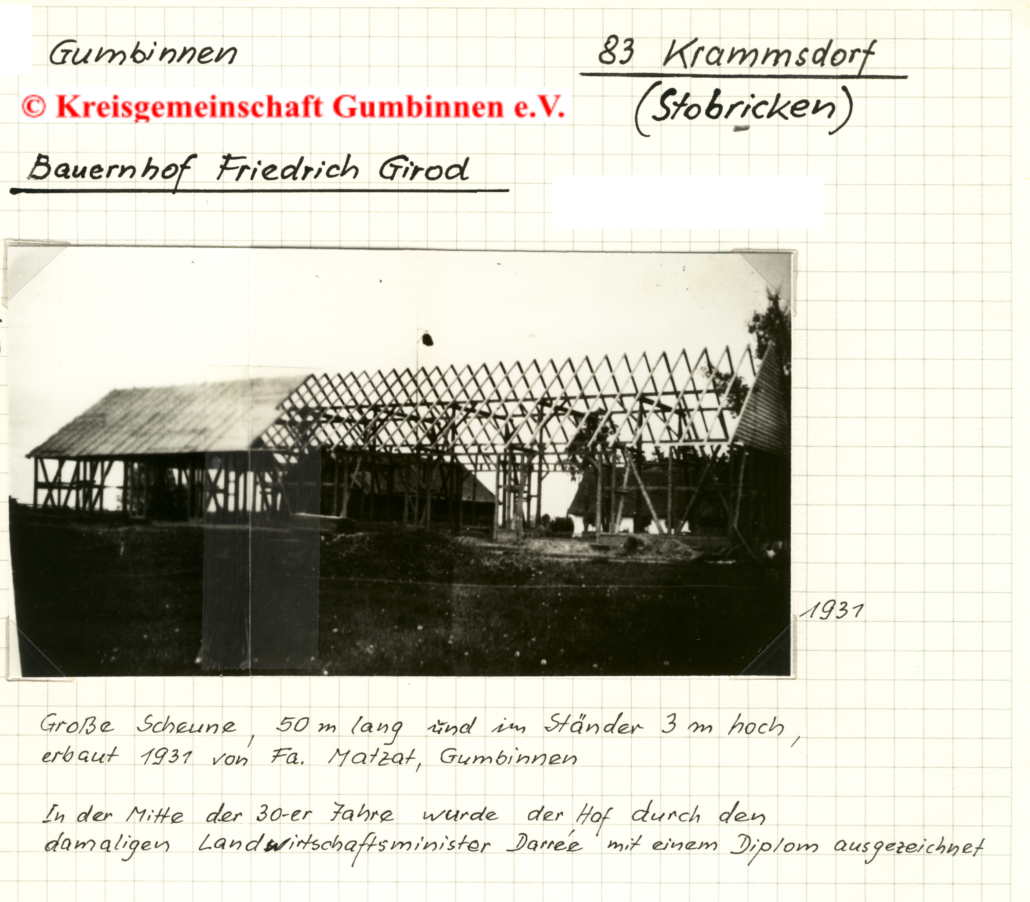 Gumbinnen
83 Krammsdorf
(Stobricken)
© Kreisgemeinschaft Gumbinnen e.V.
Bauernhof Friedrich Girod
1931
Große Scheune, 50 m lang und im Ständer 3 m hoch,
erbaut 1931 von Fa. Matzat, Gumbinnen
In der Mitte der 30-er Jahre wurde der Hof durch den
damaligen Landwirtschaftsminister Darrée mit einem Diplom ausgezeichnet